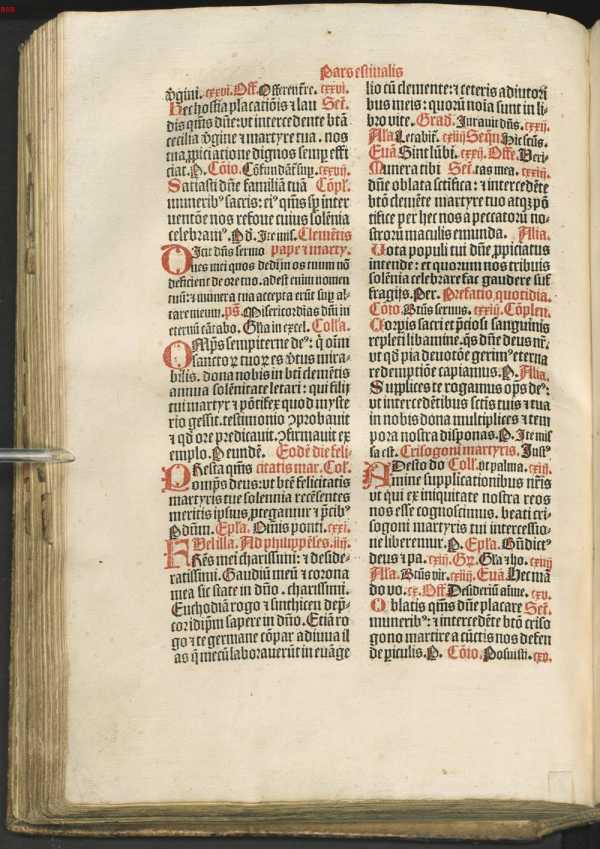 Pars estiualis
v̄gini. cxxvi. Off. Offerent̄re. cxxvi.
Hec hostia placatiōis ⁊ lau Sec̄.
dis qm̄s dn̄e: vt intercedente btā
cecilia v̄gine ⁊ martyre tua. nos
tua ꝓpiciatione dignos semp̱ effi
ciat. P. Cōio. Cōfundāt sup̱. cxxvij.
Satiasti dn̄e familiā tuā Cōpl̄.
munerib⁹ sacris: ei⁹ qm̄s sp̱ inter
uentōe nos refoue cuius solēnia
celebram⁹. P. d. Ite mis. Clemētis
Dicit dn̄s sermo pape ⁊ marty.
ones mei quos dedi in os tuum nō
deficient de ore tuo. adest enim nomen
tuū: ⁊ munera tua accepta erūt sup̱ al-
tare meum. ps̄. Misericordias dn̄i in
eternū cātabo. Gl̄ia in excel. Coll̄a.
OMp̄s sempiterne de⁹: q̇ oīm
sanctoꝝ tuoꝝ es v̄tus mira-
bilis. dona nobis in btī clemētis
annua solēnitate letari: qui filij
tui martyr ⁊ pōtifex quod myste
rio gessit. testimonio ꝯprobauit
⁊ qd̄ ore predicauit. ꝯfirmauit ex
emplo. P. eundē. Eodē die feli-
PResta qm̄s citatis mar. Col.
omp̄s deus: vt bt̄e felicitatis
martyris tue solennia recēsentes
meritis ipsius, ꝓtegamur ⁊ p̄cib⁹
P. dn̄um. Epl̄a. Om̄is ponti. cxxi.
Bel illa. Ad philippēses. iiij.
FRr̄es mei charissimi: ⁊ deside-
ratissimi. Gaudiū meū ⁊ corona
mea sic state in dn̄o. charissimi.
Euchodiā rogo ⁊ sinthicen dep̄-
cor idip̱m sapere in dn̄o. Etiā ro
go ⁊ te germane cōpar adiuua il
las q̄ mecū laborauerūt in euāge
lio cū clemente: ⁊ ceteris adiutori
bus meis: quorū noīa sunt in li-
bro vite. Grad. Iurauit dn̄s. cxxij.
Al̄a. Letabit̄. cxiiij Seqn̄. Hic scūs.
Euā. Sint lūbi. cxxij. Offe. Veri-
Munera tibi Sec̄. tas mea. cxxiij.
dn̄e oblata sctīfica: ⁊ intercedēte
btō clemēte martyre tuo atqꝫ pō
tifice per hec nos a peccatorū no-
strorū maculis emunda. Alia.
Vota populi tui dn̄e ꝓpiciatus
intende: ⁊ et quorum nos tribuis
solēnia celebrare fac gaudere suf
fragijs. Per. Prefatio quotidia.
Cōio. Btūs seruus. cxxiij. Cōplen.
Corpis sacri et p̄ciosi sanguinis
repleti libamine. qs̄ dn̄e deus nr̄.
vt qd̄ pia deuotōe gerim⁹ eterna
redemptiōe capiamus. P. Alia.
Supplices te rogamus om̄ps de⁹:
vt intercedētibus sctīs tuis ⁊ tua
in nobis dona multiplices ⁊ tem
pora nostra disponas. P. Ite mis
sa est. Crisogoni martyris. Just⁹
ADesto do Coll̄. vt palma. cxiij.
mine supplicationibus nr̄is
vt qui ex iniquitate nostra reos
nos esse cognoscimus. beati cri-
sogoni martyris tui intercessio-
ne liberemur. P. Epl̄a. Bn̄dict⁹
deus ⁊ pa. cxiij. Gꝝ. Gl̄a ⁊ ho. cxiiij
Al̄a. Btūs vir. cxiiij. Euā. Hec mā
do vo. cx. Off. Desideriū aīme. cxv.
Oblatis qm̄s dn̄e placare Sec̄.
munerib⁹: ⁊ intercedēte btō criso
gono martire a cūctis nos defen
de ꝑiculis. P. Cōio. Posuisti. cxv.